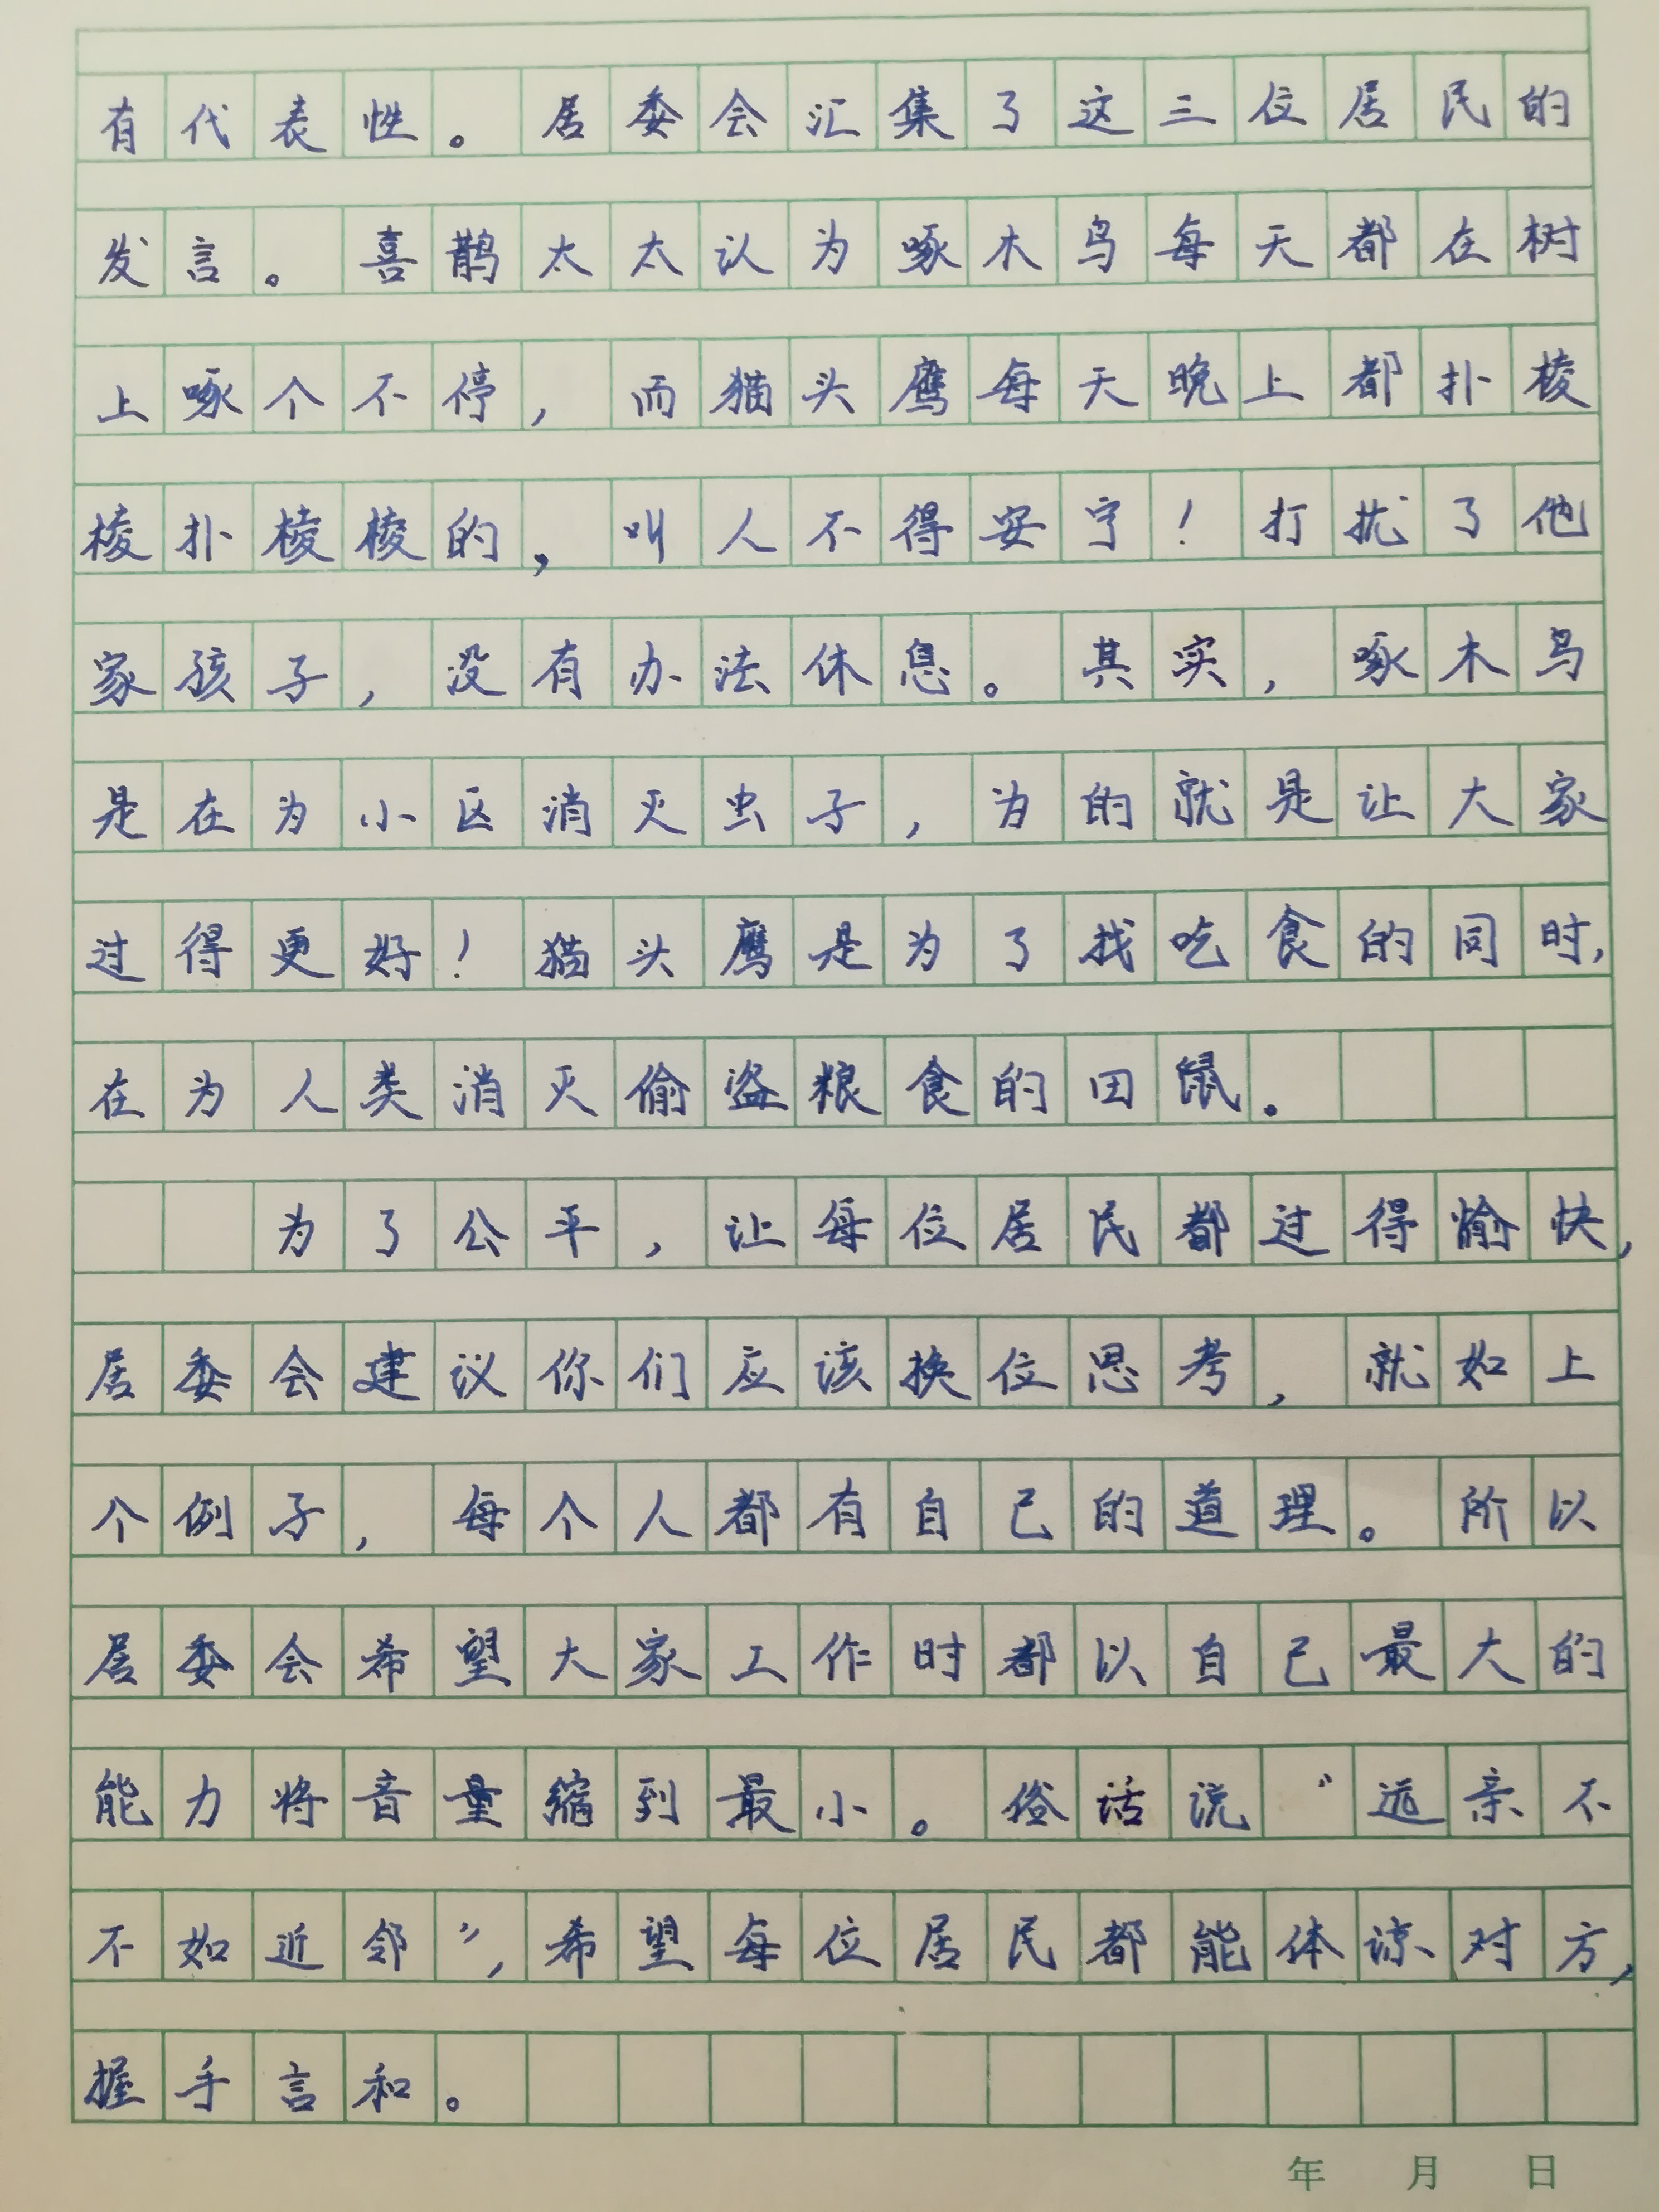 有代表性。居委会汇集了这三位居民的
发言。喜鹊太太认为啄木鸟每天都在树
上啄个不停，而猫头鹰每天晚上都扑棱
棱扑棱棱的，叫人不得安宁！打扰了他
家孩子，没有办法休息。其实，啄木鸟
是在为小区消灭虫子，为的就是让大家
过得更好！猫头鹰是为了找吃食的同时，
在为人类消灭偷盗粮食的田鼠。
为了公平，让每位居民都过得愉快，
居委会建议你们应该换位思考，就如上
个例子，每个人都有自己的道理。所以
居委会希望大家工作时都以自己最大的
能力将音量缩到最小。俗话说“远亲不
不如近邻”，希望每位居民都能体谅对方，
握手言和。
年 月 日